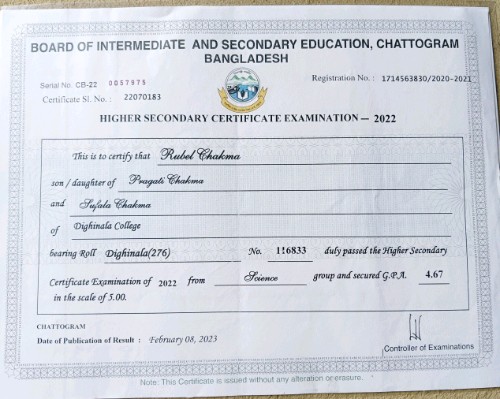 BOARD OF INTERMEDIATE AND SECONDARY EDUCATION, CHATTOGRAM
BANGLADESH
Serial No. CB-22 0057975
Registration No. : 1714563830/2020-2021
Certificate Sl. No. : 22070183
HIGHER SECONDARY CERTIFICATE EXAMINATION — 2022
This is to certify that Rubel Chakma
son / daughter of Pragati Chakma
and Sufala Chakma
of Dighinala College
bearing Roll Dighinala(276) No. 116833 duly passed the Higher Secondary
Certificate Examination of 2022 from Science group and secured G.P.A. 4.67
in the scale of 5.00.
CHATTOGRAM
Date of Publication of Result : February 08, 2023
Controller of Examinations
Note: This Certificate is issued without any alteration or erasure.